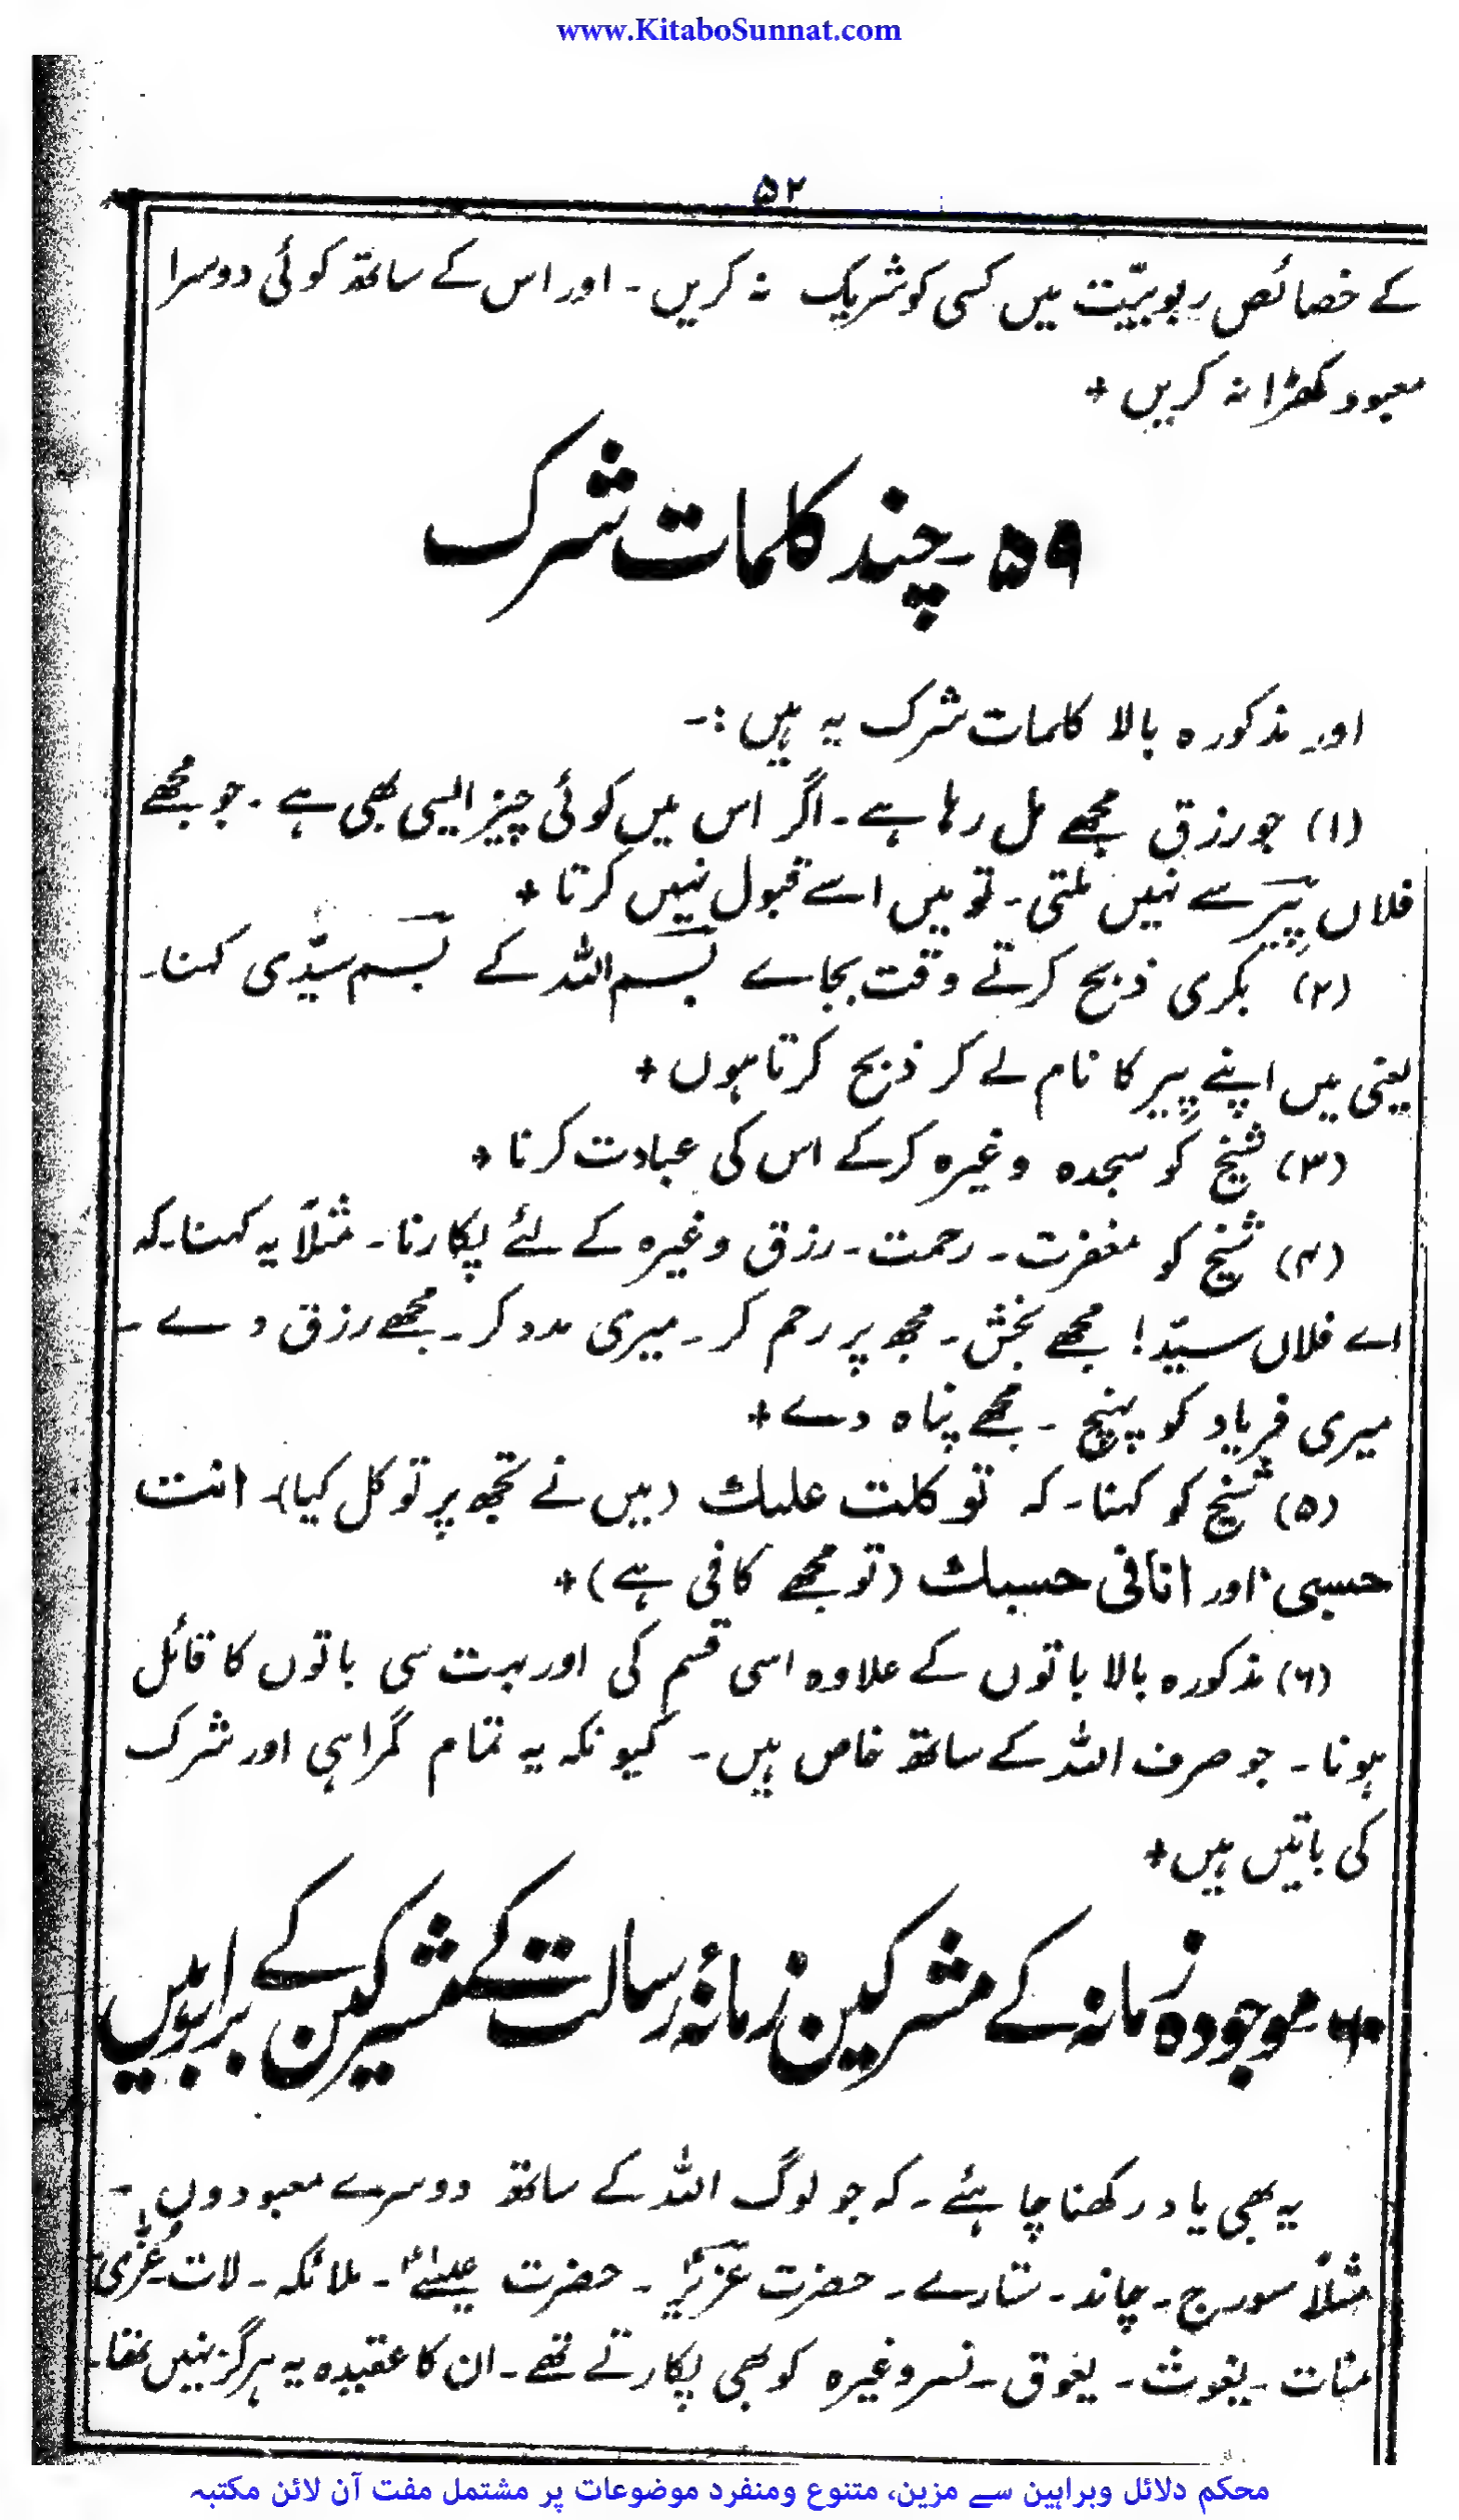 www.KitaboSunnat.com
۵۲
کے خصائص ربوبیّت میں کسی کو شریک نہ کریں۔ اور اس کے ساتھ کوئی دوسرا
معبود کھڑا نہ کریں +
۵۹۔ چند کلمات شرک
اور مذکورہ بالا کلمات شرک یہ ہیں :۔
(۱) جو رزق مجھے مل رہا ہے۔ اگر اس میں کوئی چیز ایسی بھی ہے۔ جو مجھے
فلاں پیر سے نہیں ملتی۔ تو میں اسے قبول نہیں کرتا +
(۲) بکری ذبح کرتے وقت بجاے بسم اللہ کے بسم سیّدی کہنا۔
یعنی میں اپنے پیر کا نام لے کر ذبح کرتا ہوں +
(۳) شیخ کو سجدہ وغیرہ کرکے اس کی عبادت کرنا +
(۴) شیخ کو مغفرت۔ رحمت۔ رزق وغیرہ کے لئے پکارنا۔ مثلاً یہ کہنا۔ کہ
اے فلاں سیّد! مجھے بخش۔ مجھ پر رحم کر۔ میری مدد کر۔ مجھے رزق دے۔
میری فریاد کو پہنچ۔ مجھے پناہ دے +
(۵) شیخ کو کہنا۔ کہ توکلت علیك (میں نے تجھ پر توکل کیا)۔ انت
حسبی اور انافی حسبك (تو مجھے کافی ہے) +
(۶) مذکورہ بالا باتوں کے علاوہ اسی قسم کی اور بہت سی باتوں کا قائل
ہونا۔ جو صرف اللہ کے ساتھ خاص ہیں۔ کیونکہ یہ تمام گمراہی اور شرک
کی باتیں ہیں +
۶۰۔ موجودہ زمانہ کے مشرکین زمانۂ رسالت کے مشرکین کے برابر ہیں
یہ بھی یاد رکھنا چاہئے۔ کہ جو لوگ اللہ کے ساتھ دوسرے معبودوں۔
مثلاً سورج۔ چاند۔ ستارے۔ حضرت عزیرؑ۔ حضرت عیسٰےؑ۔ ملائکہ۔ لات۔ عُزّیٰ
منات۔ یغوث۔ یغوق۔ نسر وغیرہ کو بھی پکارتے تھے۔ ان کا عقیدہ یہ ہرگز نہیں تھا۔
محکم دلائل وبراہین سے مزین، متنوع ومنفرد موضوعات پر مشتمل مفت آن لائن مکتبہ